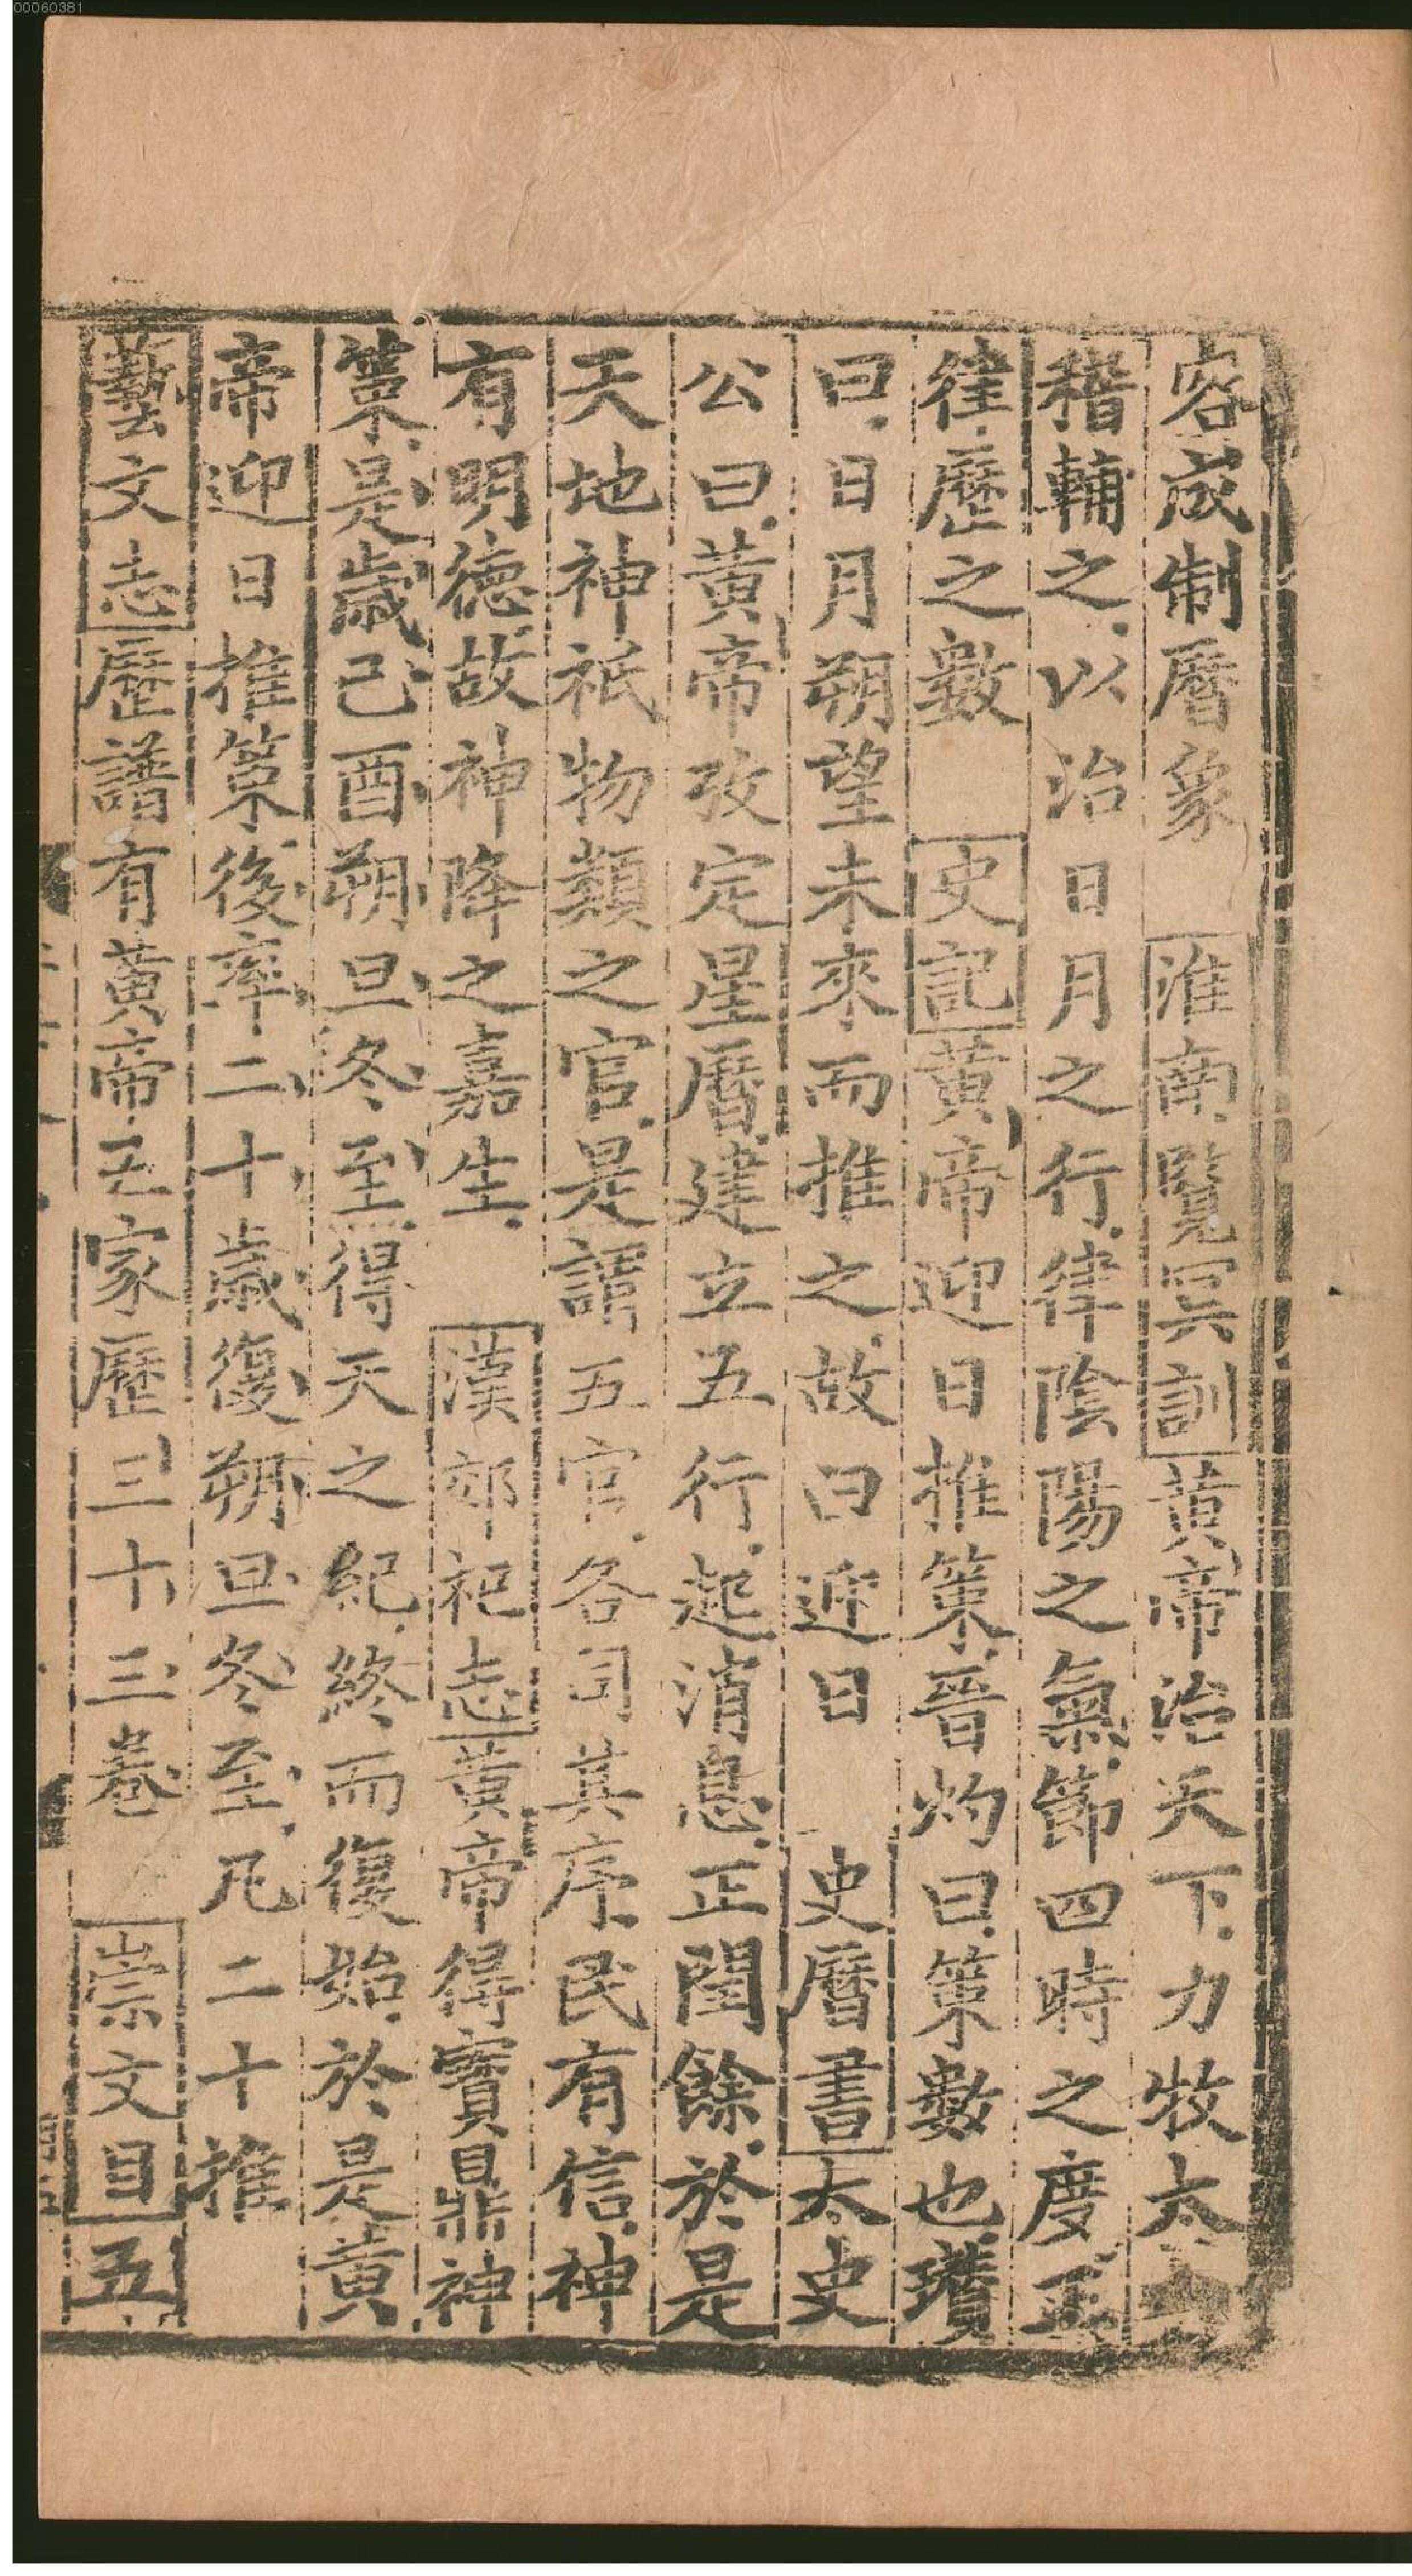 00060381
容成制曆象　淮南覽冥訓黃帝治天下力牧太
稽輔之以治日月之行律陰陽之氣節四時之度正
律歷之數　史記黃帝迎日推策晉灼曰策數也瓚
曰日月朔望未來而推之故曰迎日　史曆書太史
公曰黃帝攷定星曆建立五行起消息正閏餘於是
天地神祇物類之官是謂五官各司其序民有信神
有明德故神降之嘉生　漢郊祀志黃帝得寶鼎神
策是歲己酉朔旦冬至得天之紀終而復始於是黃
帝迎日推策後率二十歲復朔旦冬至凡二十推
藝文志歷譜有黃帝五家歷三十三卷　崇文目五